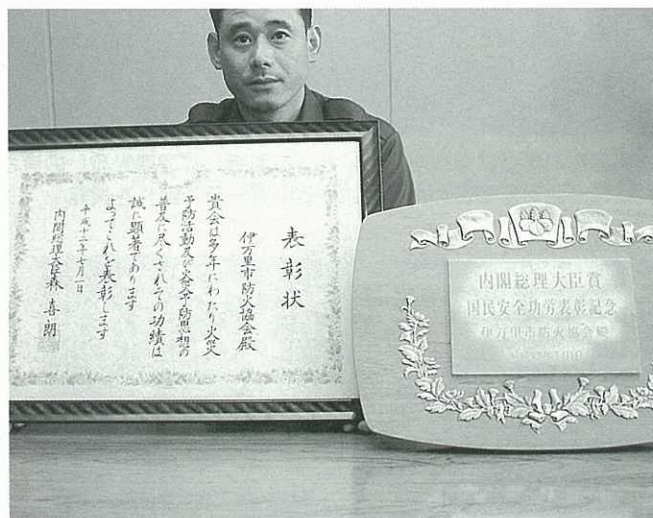 表彰状
伊万里市防火協会殿
貴会は多年にわたり火災
予防活動及び火災予防思想の
普及に尽くされその功績は
誠に顕著であります
よってこれを表彰します
平成十二年七月一日
内閣総理大臣森喜朗
内閣総理大臣賞
国民安全功労表彰記念
伊万里市防火協会殿